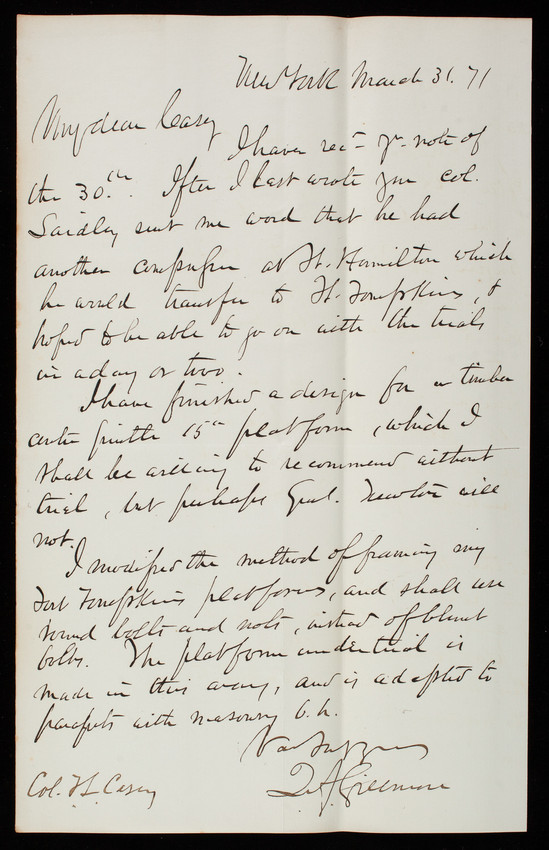 New York March 31. 71
My dear Casey
I have rec'd yr. note of
the 30th. After I last wrote you Col.
sent me word that he had
another at Ft. Hamilton which
he would transfer to Ft. Tompkins, &
hoped to be able to go on with the trials
in a day or two.
I have finished a design for a timber
centre pintle 15in platform, which I
shall be willing to recommend without
trial, but perhaps Genl. Newton will
not.
I modified the method of framing my
Fort Tompkins platforms, and shall use
round bolts and nuts, instead of blunt
bolts. The platform under trial is
made in this way, and is adapted to
parapets with masonry b.h.
Q A Gillmore
Col. T L Casey